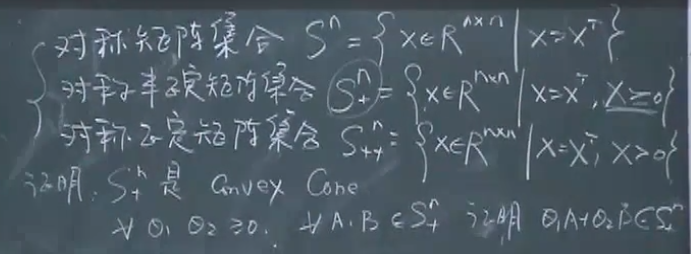 对称矩阵集合 Sⁿ = { X∈Rⁿˣⁿ | X=Xᵀ }
对称半正定矩阵集合 S₊ⁿ = { X∈Rⁿˣⁿ | X=Xᵀ, X≥0 }
对称正定矩阵集合 S₊₊ⁿ = { X∈Rⁿˣⁿ | X=Xᵀ, X>0 }
证明. S₊ⁿ 是 Convex Cone
∀ θ₁ θ₂ ≥0. ∀ A. B ∈ S₊ⁿ 证明 θ₁A+θ₂B∈S₊ⁿ